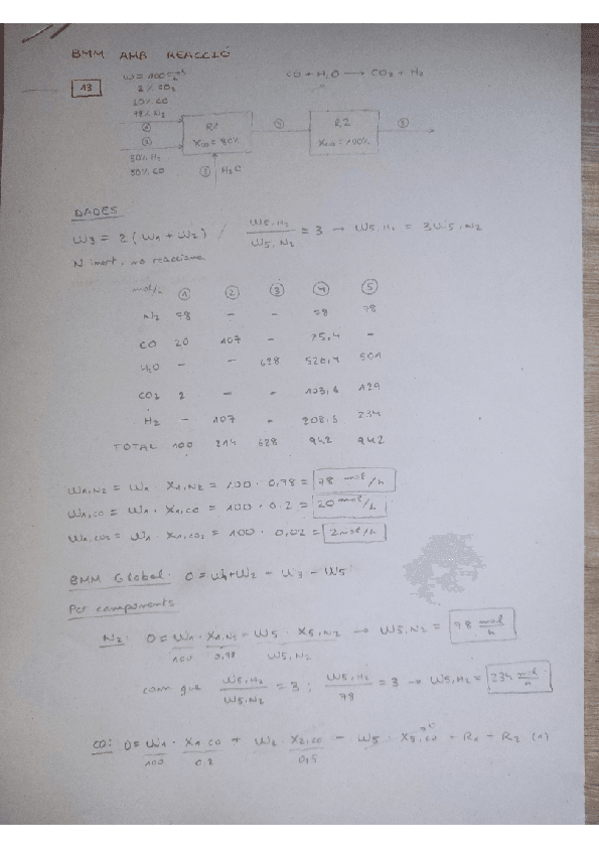 BMM AMB REACCIÓ
13
W = 100
2% CO2
20% CO
78% N2
CO + H2O → CO2 + H2
1
2
R1
XCO = 80%
4
R2
XCO = 100%
5
50% H2
50% CO
3 H2O
DADES
W3 = 2(W1 + W2) / W5,H2 / W5,N2 = 3 → W5,H2 = 3W5,N2
N inert, no reacciona
mol/h 1 2 3 4 5
N2 78 - - 78 78
CO 20 107 - 25,4 -
H2O - - 628 526,4 501
CO2 2 - - 103,6 129
H2 - 107 - 208,6 234
TOTAL 100 214 628 942 942
W1,N2 = W1 · X1,N2 = 100 · 0,78 = 78 mol/h
W1,CO = W1 · X1,CO = 100 · 0.2 = 20 mol/h
W1,CO2 = W1 · X1,CO2 = 100 · 0,02 = 2 mol/h
BMM Global: 0 = W1 + W2 + W3 - W5
Per components
N2: 0 = W1 · X1,N2 - W5 · X5,N2 → W5,N2 = 78 mol/h
100 0,78 W5,N2
com que W5,H2 / W5,N2 = 3 ; W5,H2 / 78 = 3 → W5,H2 = 234 mol/h
CO: 0 = W1 · X1,CO + W2 · X2,CO - W5 · X5,CO - R1 - R2 (1)
100 0.2 0,5